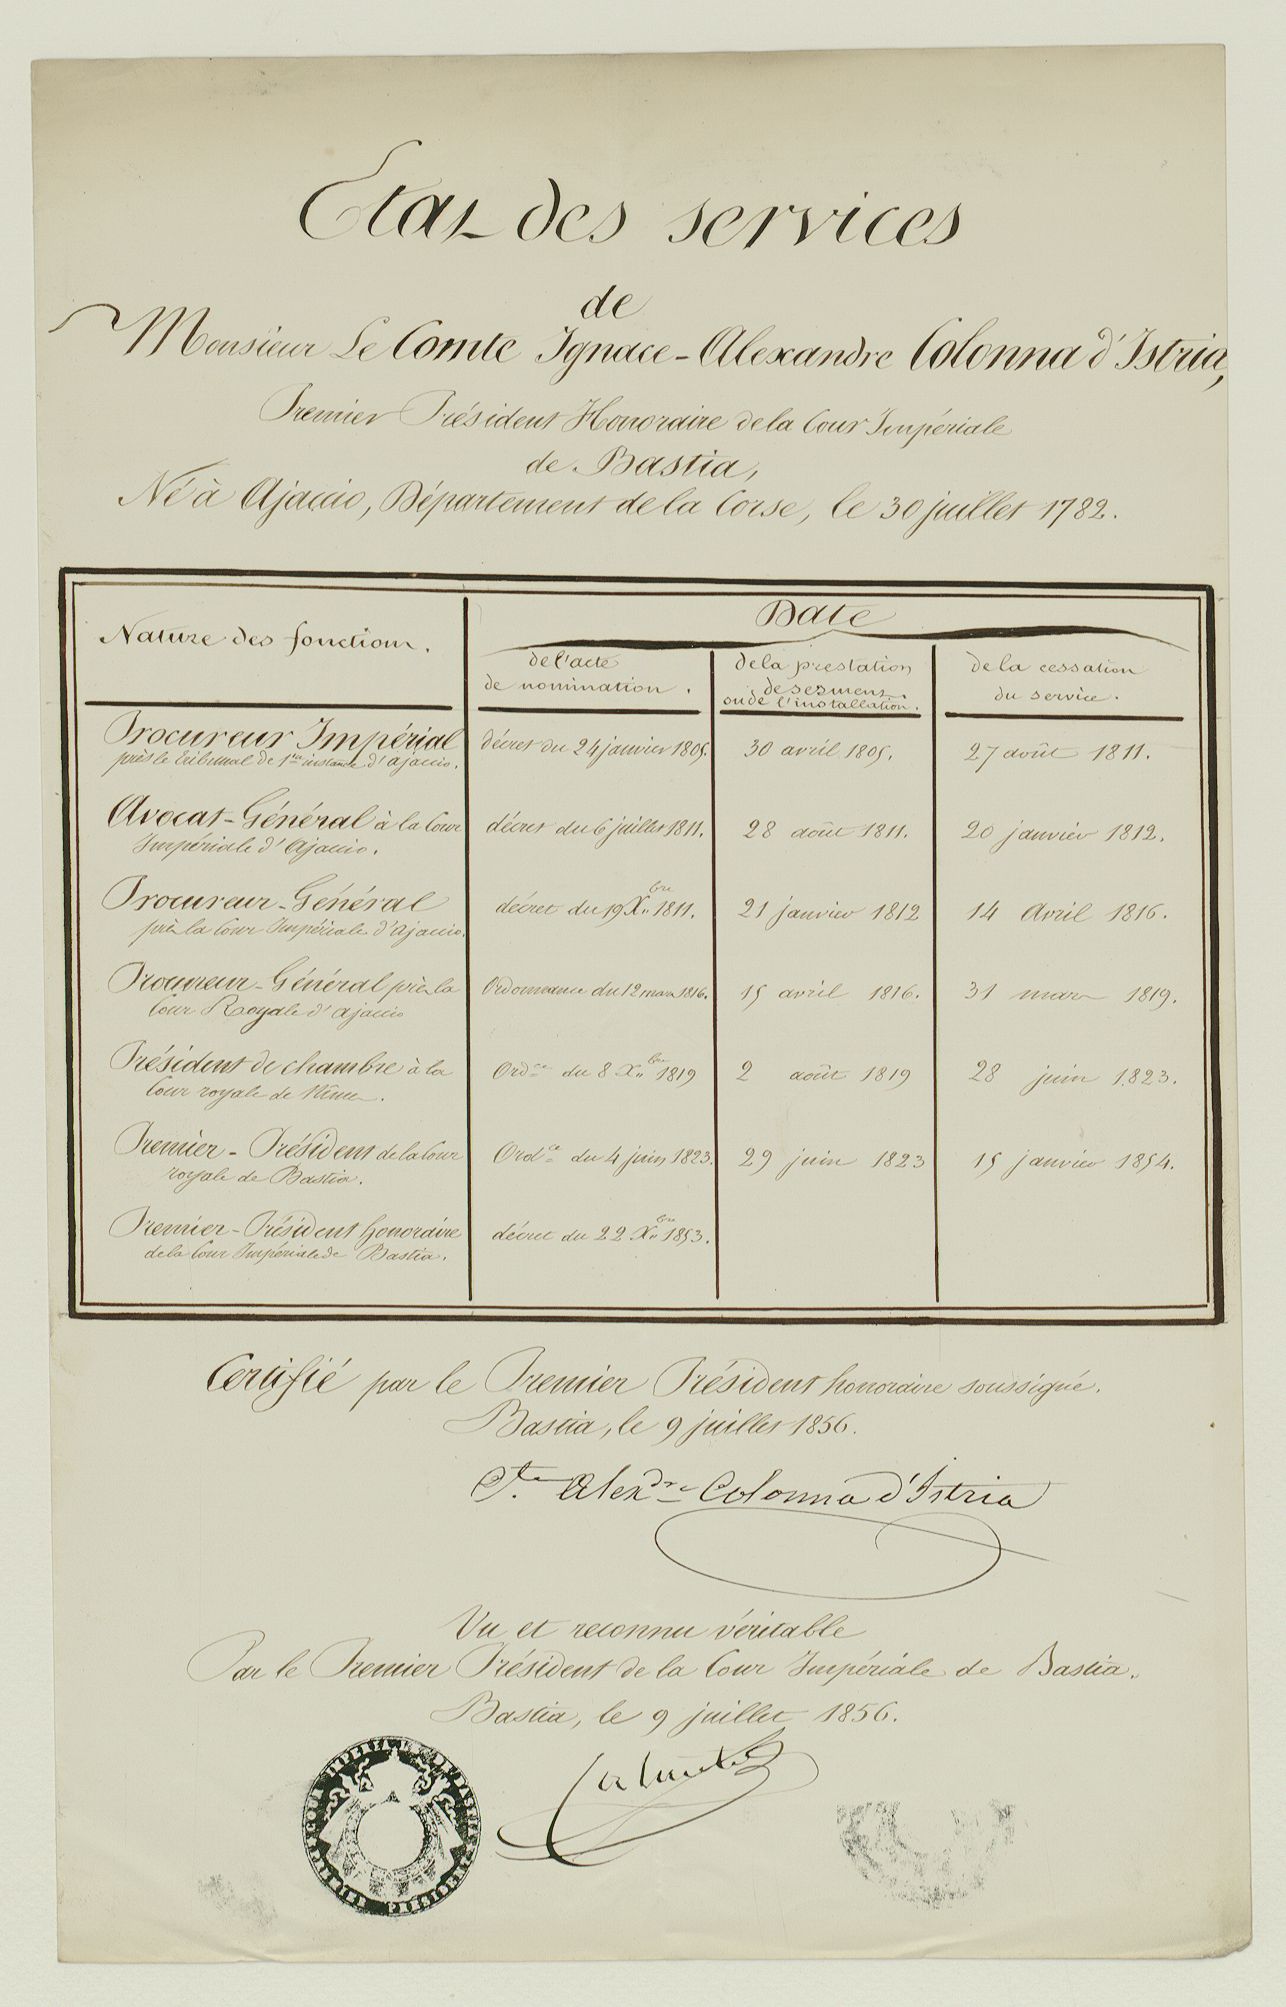 Etat des services
de
Monsieur Le Comte Ignace-Alexandre Colonna d'Istria,
Premier Président Honoraire de la Cour Impériale
de Bastia,
Né à Ajaccio, Département de la Corse, le 30 juillet 1782.
Nature des fonctions.
Date
de l'acte
de nomination.
de la prestation
de serment
ou de l'installation.
de la cessation
du service.
Procureur Impérial
près le tribunal de 1re instance d'ajaccio.
décret du 24 janvier 1805.
30 avril 1805.
27 août 1811.
Avocat-Général à la Cour
Impériale d'Ajaccio.
décret du 6 juillet 1811.
28 août 1811.
20 janvier 1812.
Procureur-Général
près la Cour Impériale d'Ajaccio.
décret du 19 Xbre 1811.
21 janvier 1812
14 Avril 1816.
Procureur-Général près la
Cour Royale d'Ajaccio
Ordonnance du 12 mars 1816.
15 avril 1816.
31 mars 1819.
Président de chambre à la
Cour royale de Nîmes.
Ordce du 8 Xbre 1819
2 août 1819
28 juin 1823.
Premier-Président de la Cour
royale de Bastia.
Ordce du 4 juin 1823.
29 juin 1823
15 janvier 1854.
Premier-Président honoraire
de la Cour Impériale de Bastia.
décret du 22 Xbre 1853.
Certifié par le Premier Président honoraire soussigné.
Bastia, le 9 juillet 1856.
Cte Alexdre Colonna d'Istria
Vu et reconnu véritable
Par le Premier Président de la Cour Impériale de Bastia.
Bastia, le 9 juillet 1856.
COUR IMPERIALE DE BASTIA
PREMIER PRÉSIDENT